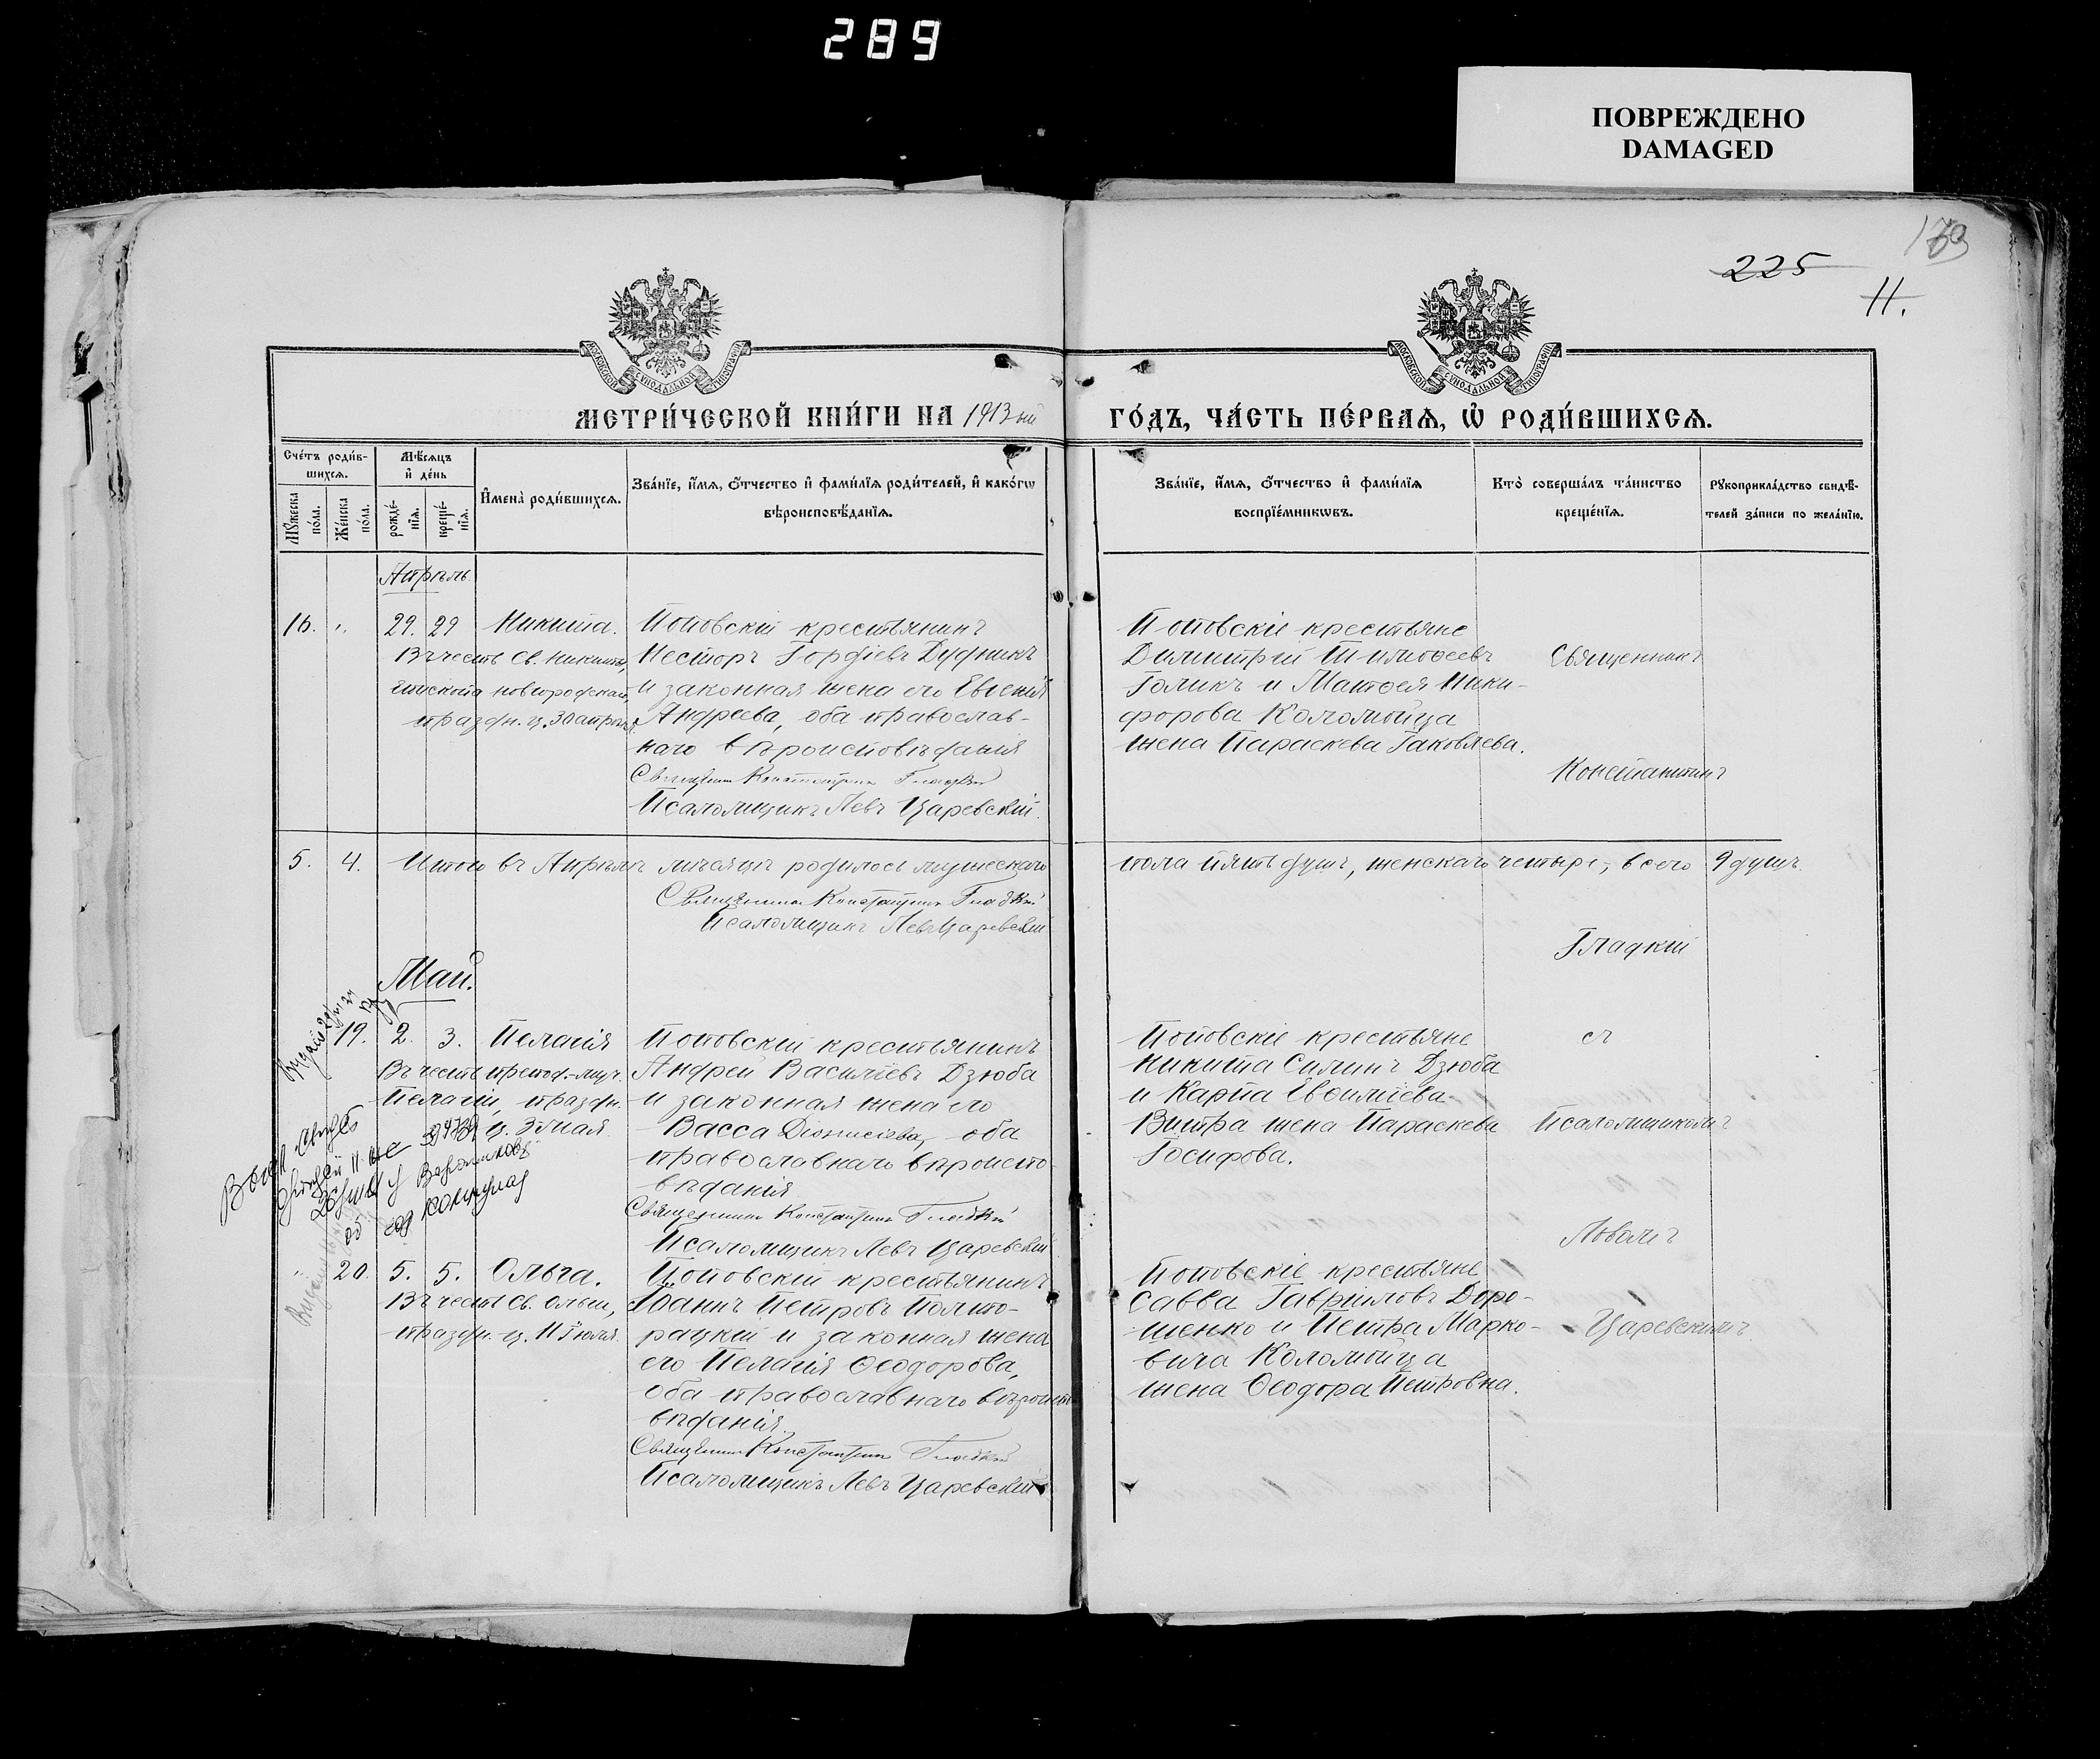 289
ПОВРЕЖДЕНО
DAMAGED
225
11.
МОСКОВСКОЙ СѴНОДАЛЬНОЙ ТИПОГРАФІИ
МОСКОВСКОЙ СѴНОДАЛЬНОЙ ТИПОГРАФІИ
МЕТРИ́ЧЕСКОЙ КНИ́ГИ НА 1913 ый
ГО́ДЪ, ЧА́СТЬ ПЕ́РВАѦ, Ѡ҆ РОДИ́ВШИХСѦ.
Сче́тъ роди́в-
шихсѧ.
Мꙋжеска
по́ла.
Же́нска
по́ла.
Мѣ́сѧцъ
и҆ де́нь
рожде́-
нїѧ.
креще́-
нїѧ.
И҆мена̀ роди́вшихсѧ.
Зва́нїе, и҆́мѧ, ѻ҆́тчество и҆ фами́лїѧ роди́телей, и҆ како́гѡ
вѣроисповѣ́данїѧ.
Зва́нїе, и҆́мѧ, ѻ҆́тчество и҆ фами́лїѧ
воспрїе́мникѡвъ.
Кто̀ соверша́лъ та́инство
креще́нїѧ.
Рꙋкоприкла́дство свидѣ́-
телей за́писи по жела́нїю.
Апрѣль
16. " 29. 29 Никита.
Въ честь Св. Никиты,
Епископа Новгородскаго,
праздн. ц. 30 апрѣля
Поповскій крестьянинъ
Несторъ Гордіевъ Дудникъ
и законная жена его Евгенія
Андреева, оба православ-
наго вѣроисповѣданія
Священникъ Константинъ Гладкій
Псаломщикъ Левъ Царевскій.
Поповскіе крестьяне
Димитрій Тимоѳеевъ
Голикъ и Матѳея Ники-
форова Коломойца
жена Параскева Іаковлева.
Священникъ
Константинъ
5. 4. Итого въ Апрѣлѣ мѣсяцѣ родилось мужескаго
пола пять душъ, женскаго четыре, всего 9 душъ.
Священникъ Константинъ Гладкій
Псаломщикъ Левъ Царевскій
Гладкій
Май.
19. 2. 3. Пелагія
Въ честь препод.-муч.
Пелагіи, праздн.
ц. 3 Мая.
Поповскій крестьянинъ
Андрей Василіевъ Дзюба
и законная жена его
Васса Діонисіева, оба
православнаго вѣроиспо-
вѣданія
Священникъ Константинъ Гладкій
Псаломщикъ Левъ Царевскій
Поповскіе крестьяне
Никита Силинъ Дзюба
и Карпа Евѳиміева
Витра жена Параскева
Іосифова.
съ
Псаломщикомъ
Львомъ
Царевскимъ.
" 20. 5. 5. Ольга.
Въ честь Св. Ольги,
праздн. ц. 11 Іюля.
Поповскій крестьянинъ
Іоаннъ Петровъ Полто-
рацкій и законная жена
его Пелагія Ѳеодорова,
оба православнаго вѣроиспо-
вѣданія.
Священникъ Константинъ Гладкій
Псаломщикъ Левъ Царевскій
Поповскіе крестьяне
Савва Гавріиловъ Доро-
шенко и Петра Марко-
вича Коломойца
жена Ѳеодора Петровна.